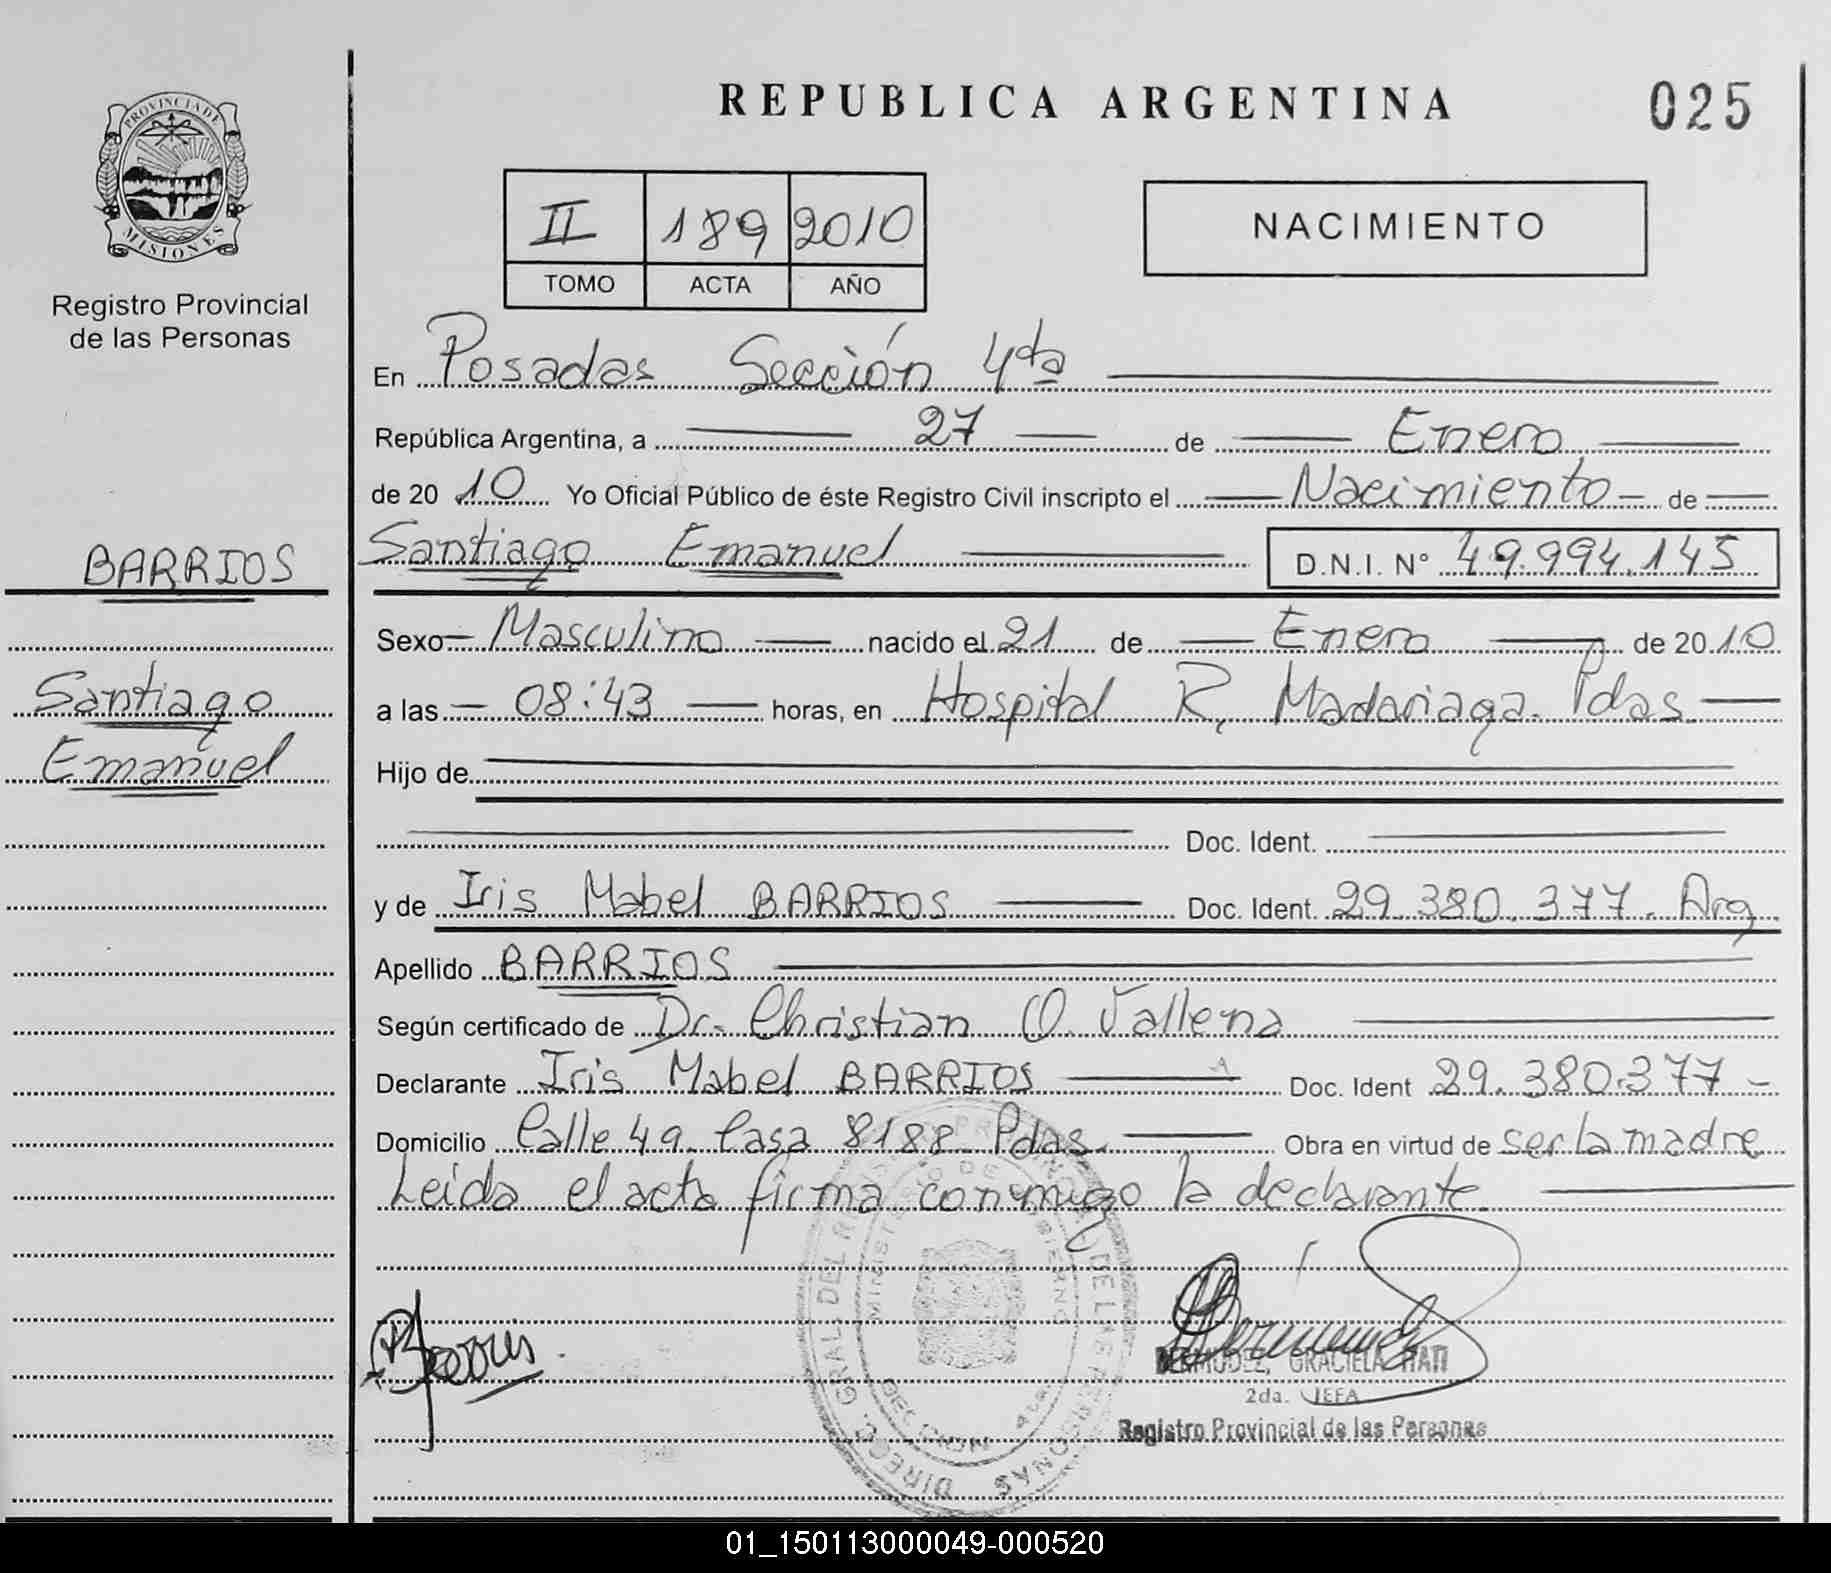 REPUBLICA ARGENTINA
025
PROVINCIA DE
MISIONES
Registro Provincial
de las Personas
II 189 2010
TOMO ACTA AÑO
NACIMIENTO
En Posadas Sección 4ta
República Argentina, a 27 de Enero
de 2010 Yo Oficial Público de éste Registro Civil inscripto el Nacimiento de
BARRIOS
Santiago Emanuel D.N.I. N° 49.994.145
Sexo Masculino nacido el 21 de Enero de 2010
Santiago
a las 08:43 horas, en Hospital R. Madariaga. Pdas
Emanuel
Hijo de
Doc. Ident.
y de Iris Mabel BARRIOS Doc. Ident. 29.380.377. Arg
Apellido BARRIOS
Según certificado de Dr. Christian O. Vallena
Declarante Iris Mabel BARRIOS Doc. Ident 29.380.377
Domicilio Calle 49. Casa 8188 Pdas. Obra en virtud de ser la madre
Leida el acta firma conmigo la declarante.
BERMUDEZ, GRACIELA ITATI
2da. JEFA
Registro Provincial de las Personas
01_150113000049-000520